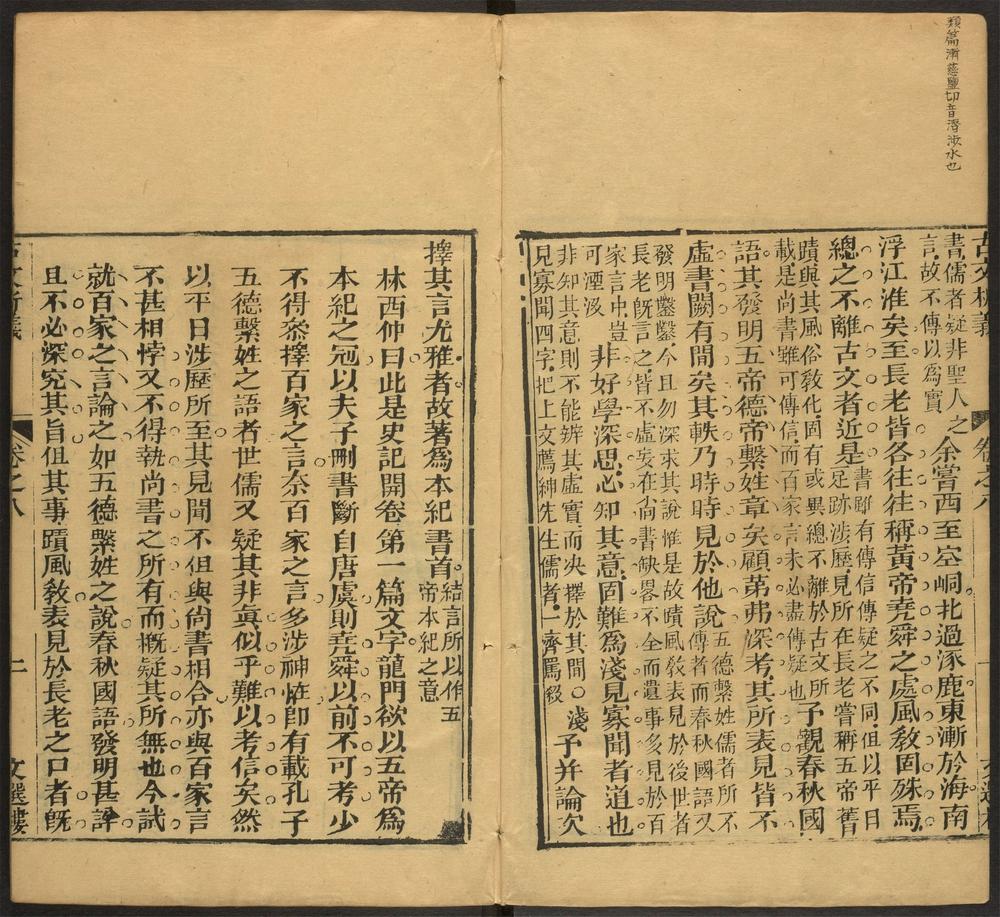 類篇漸慈鹽切音潛涉水也
古文析義
卷之八
書儒者疑非聖人之
言故不傳以爲實
余嘗西至空峒北過涿鹿東漸於海南
浮江淮矣至長老皆各往往稱黃帝堯舜之處風敎固殊焉
總之不離古文者近是
書雖有傳信傳疑之不同但以平日
足跡涉歷見所在長老嘗稱五帝舊
蹟與其風俗敎化固有或異總不離於古文所
載是尚書雖可傳信而百家言未必盡傳疑也
予觀春秋國
語其發明五帝德帝繫姓章矣顧第弗深考其所表見皆不
虛書闕有間矣其軼乃時時見於他說
五德繫姓儒者所不
傳者而春秋國語又
發明鑿鑿今且勿深求其說惟是故蹟風敎表見於後世者
長老旣言之皆不虛妄在尚書缺畧不全而遺事多見於百
家言中豈
可湮沒
非好學深思心知其意固難爲淺見寡聞者道也
非知其意則不能辨其虛實而決擇於其間○淺
見寡聞四字把上文薦紳先生儒者一齊罵殺
予并論次
擇其言尤雅者故著爲本紀書首
結言所以作五
帝本紀之意
林西仲曰此是史記開卷第一篇文字龍門欲以五帝爲
本紀之冠以夫子刪書斷自唐虞則堯舜以前不可考少
不得叅擇百家之言奈百家之言多涉神恠卽有載孔子
五德繫姓之語者世儒又疑其非眞似乎難以考信矣然
以平日涉歷所至其見聞不但與尚書相合亦與百家言
不甚相悖又不得執尚書之所有而槪疑其所無也今試
就百家之言論之如五德繫姓之說春秋國語發明甚詳
且不必深究其旨但其事蹟風敎表見於長老之口者旣
卷之八
二
文選樓